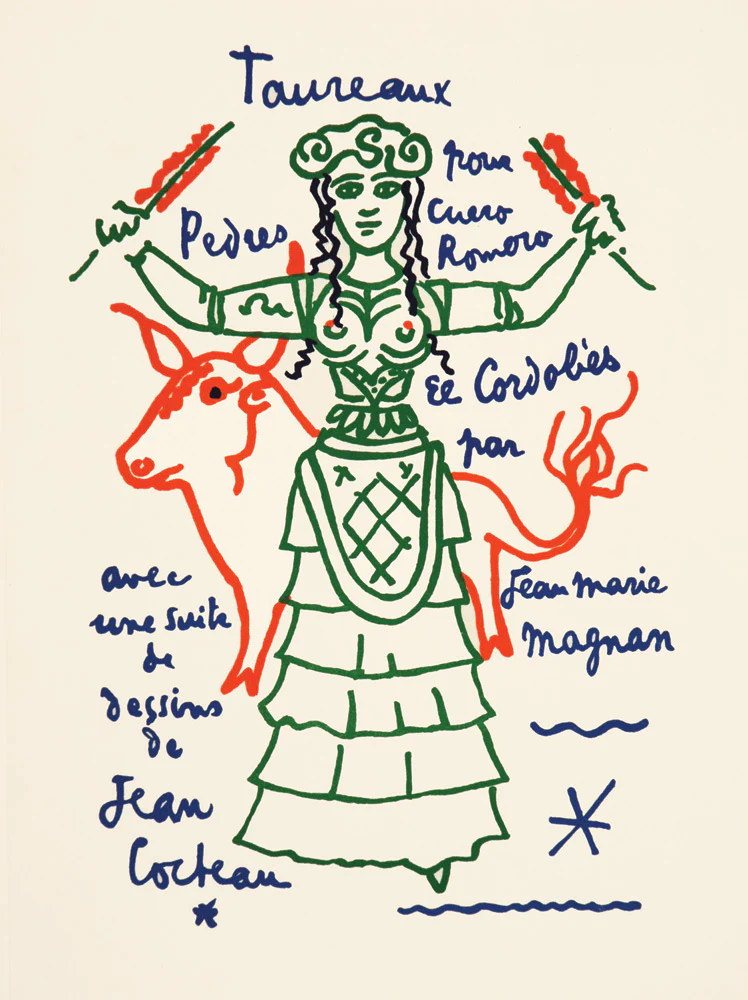 Taureaux
pour
Pedres
Curro
Romero
El Cordobés
par
Jean Marie
Magnan
avec
une suite
de
dessins
de
Jean
Cocteau